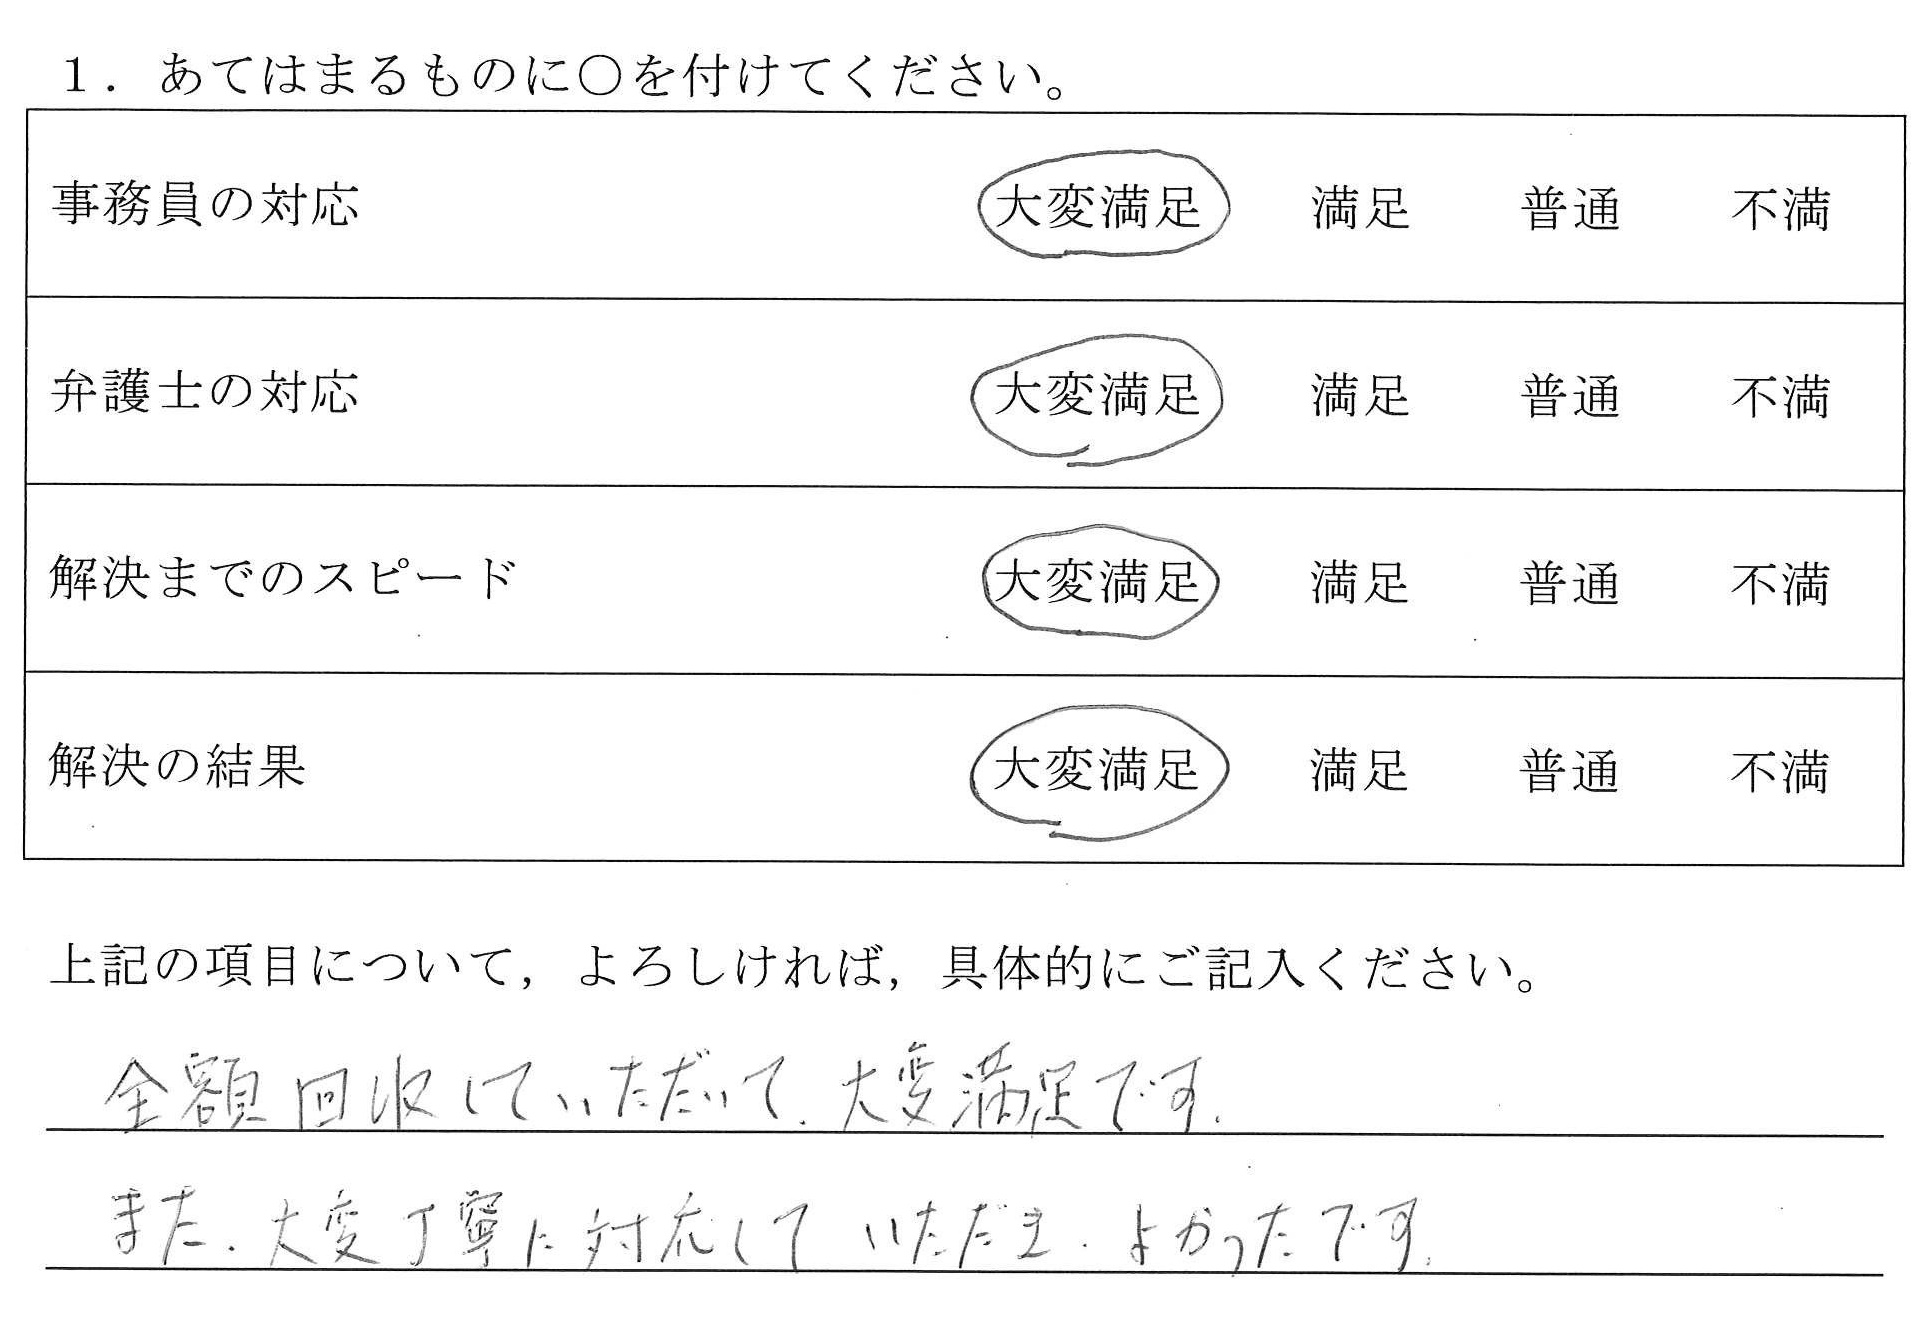 1．あてはまるものに○を付けてください。
事務員の対応 大変満足 満足 普通 不満
弁護士の対応 大変満足 満足 普通 不満
解決までのスピード 大変満足 満足 普通 不満
解決の結果 大変満足 満足 普通 不満
上記の項目について，よろしければ，具体的にご記入ください。
全額回収していただいて、大変満足です。
また、大変丁寧に対応していただき、よかったです。